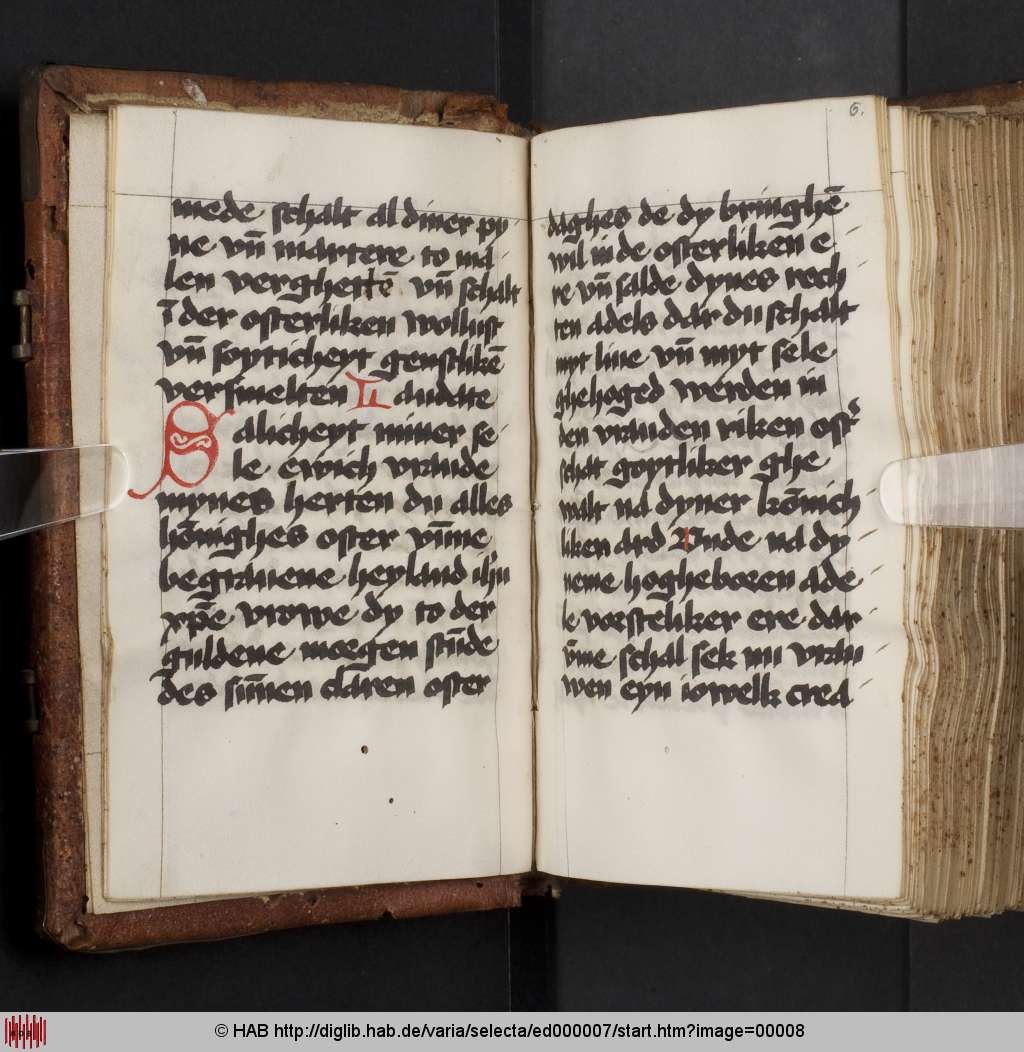 mede schalt al diner py
ne vn̄ martere to ma
len vergheten̄ vn̄ schalt
ī der osterliken wollust
vn̄ soyticheyt genstlikē
versmelten Laudette
Salicheyt miner se
le ewich vraude
mynes herten du alles
hōnighes oster vm̄me
begrauene heyland ihū
xp̄e vrowe dy to der
guldene morgen stūde
des sūnen claren oster
6.
daghes de dy bringhē
wil in de osterliken e
re vn̄ salde dynes rech
ten adels dar du schalt
myt liue vn̄ myt sele
ghehoged werden in
den vrauden riken ost
schat goytliker ghe
walt na dyner kōnich
liken ard Unde na dy
neme hogheboren ade
le vorsteliker ere dar
vm̄e schal sek nu vrau
wen eyn iowelk crea
© HAB http://diglib.hab.de/varia/selecta/ed000007/start.htm?image=00008